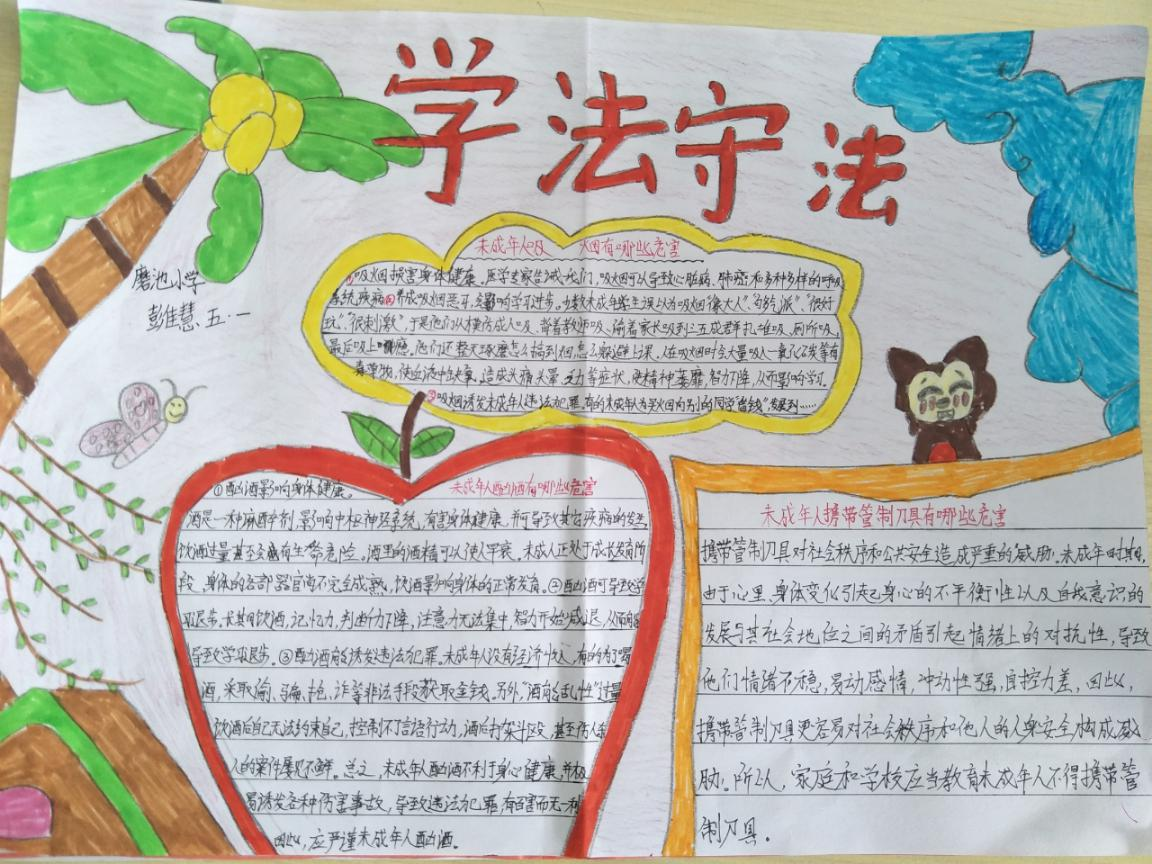 学法守法
磨池小学
彭佳慧 五·一
未成年人吸 烟有哪些危害
①吸烟损害身体健康。医学专家告诫我们,吸烟可以导致心脏病、肺癌和多种多样的呼吸
系统疾病②养成吸烟恶习,会影响学习进步。少数未成年学生误以为吸烟像大人”、“够派”、“很好
玩”、“很刺激”,于是他们从模仿成人吸,背着教师吸、偷着家长吸到三五成群扎堆吸、厕所吸,
最后吸上瘾。他们还整天琢磨怎么搞到烟,怎么躲避上课,人在吸烟时会大量吸入一氧化碳等有
毒事物,使血液中缺氧,造成头痛头晕,乏力等症状,使精神萎靡,智力下降,从而影响学习。
③吸烟诱发未成年人违法犯罪。有的未成年人为买烟向别的同学“借钱”,发展到……
未成年人酗酒有哪些危害
①酗酒影响身体健康。
酒是一种麻醉剂,影响中枢神经系统,有害身体健康,并可导致其它疾病的发生
饮酒过量甚至会有生命危险。酒里的酒精可以使人早衰。未成人正处于成长发育阶
段,身体的各部器官尚不完全成熟,饮酒影响身体的正常发育。②酗酒可导致学
习退步。长期饮酒,记忆力,判断力下降,注意力无法集中,智力开始减退,从而
导致学习退步。③酗酒能诱发违法犯罪。未成年人没有经济收入,有的为了喝
酒,采取偷、骗、抢、诈等非法手段获取金钱。另外,“酒能乱性”过量
饮酒后自己无法约束自己,控制不了言语行动,酒后打架斗殴,甚至伤人杀
人的案件屡见不鲜。总之,未成年人酗酒不利于身心健康,并极
易诱发各种伤害事故,导致违法犯罪,有百害而无一利
因此,应严谨未成年人酗酒。
未成年人携带管制刀具有哪些危害
携带管制刀具对社会秩序和公共安全造成严重的威胁。未成年时期,
由于心里、身体变化引起身心的不平衡性以及自我意识的
发展与其社会地位之间的矛盾引起情绪上的对抗性,导致
他们情绪不稳,易动感情,冲动性强,自控力差,因此,
携带管制刀具更容易对社会秩序和他人的人身安全构成威
胁。所以,家庭和学校应当教育未成年人不得携带管
制刀具。